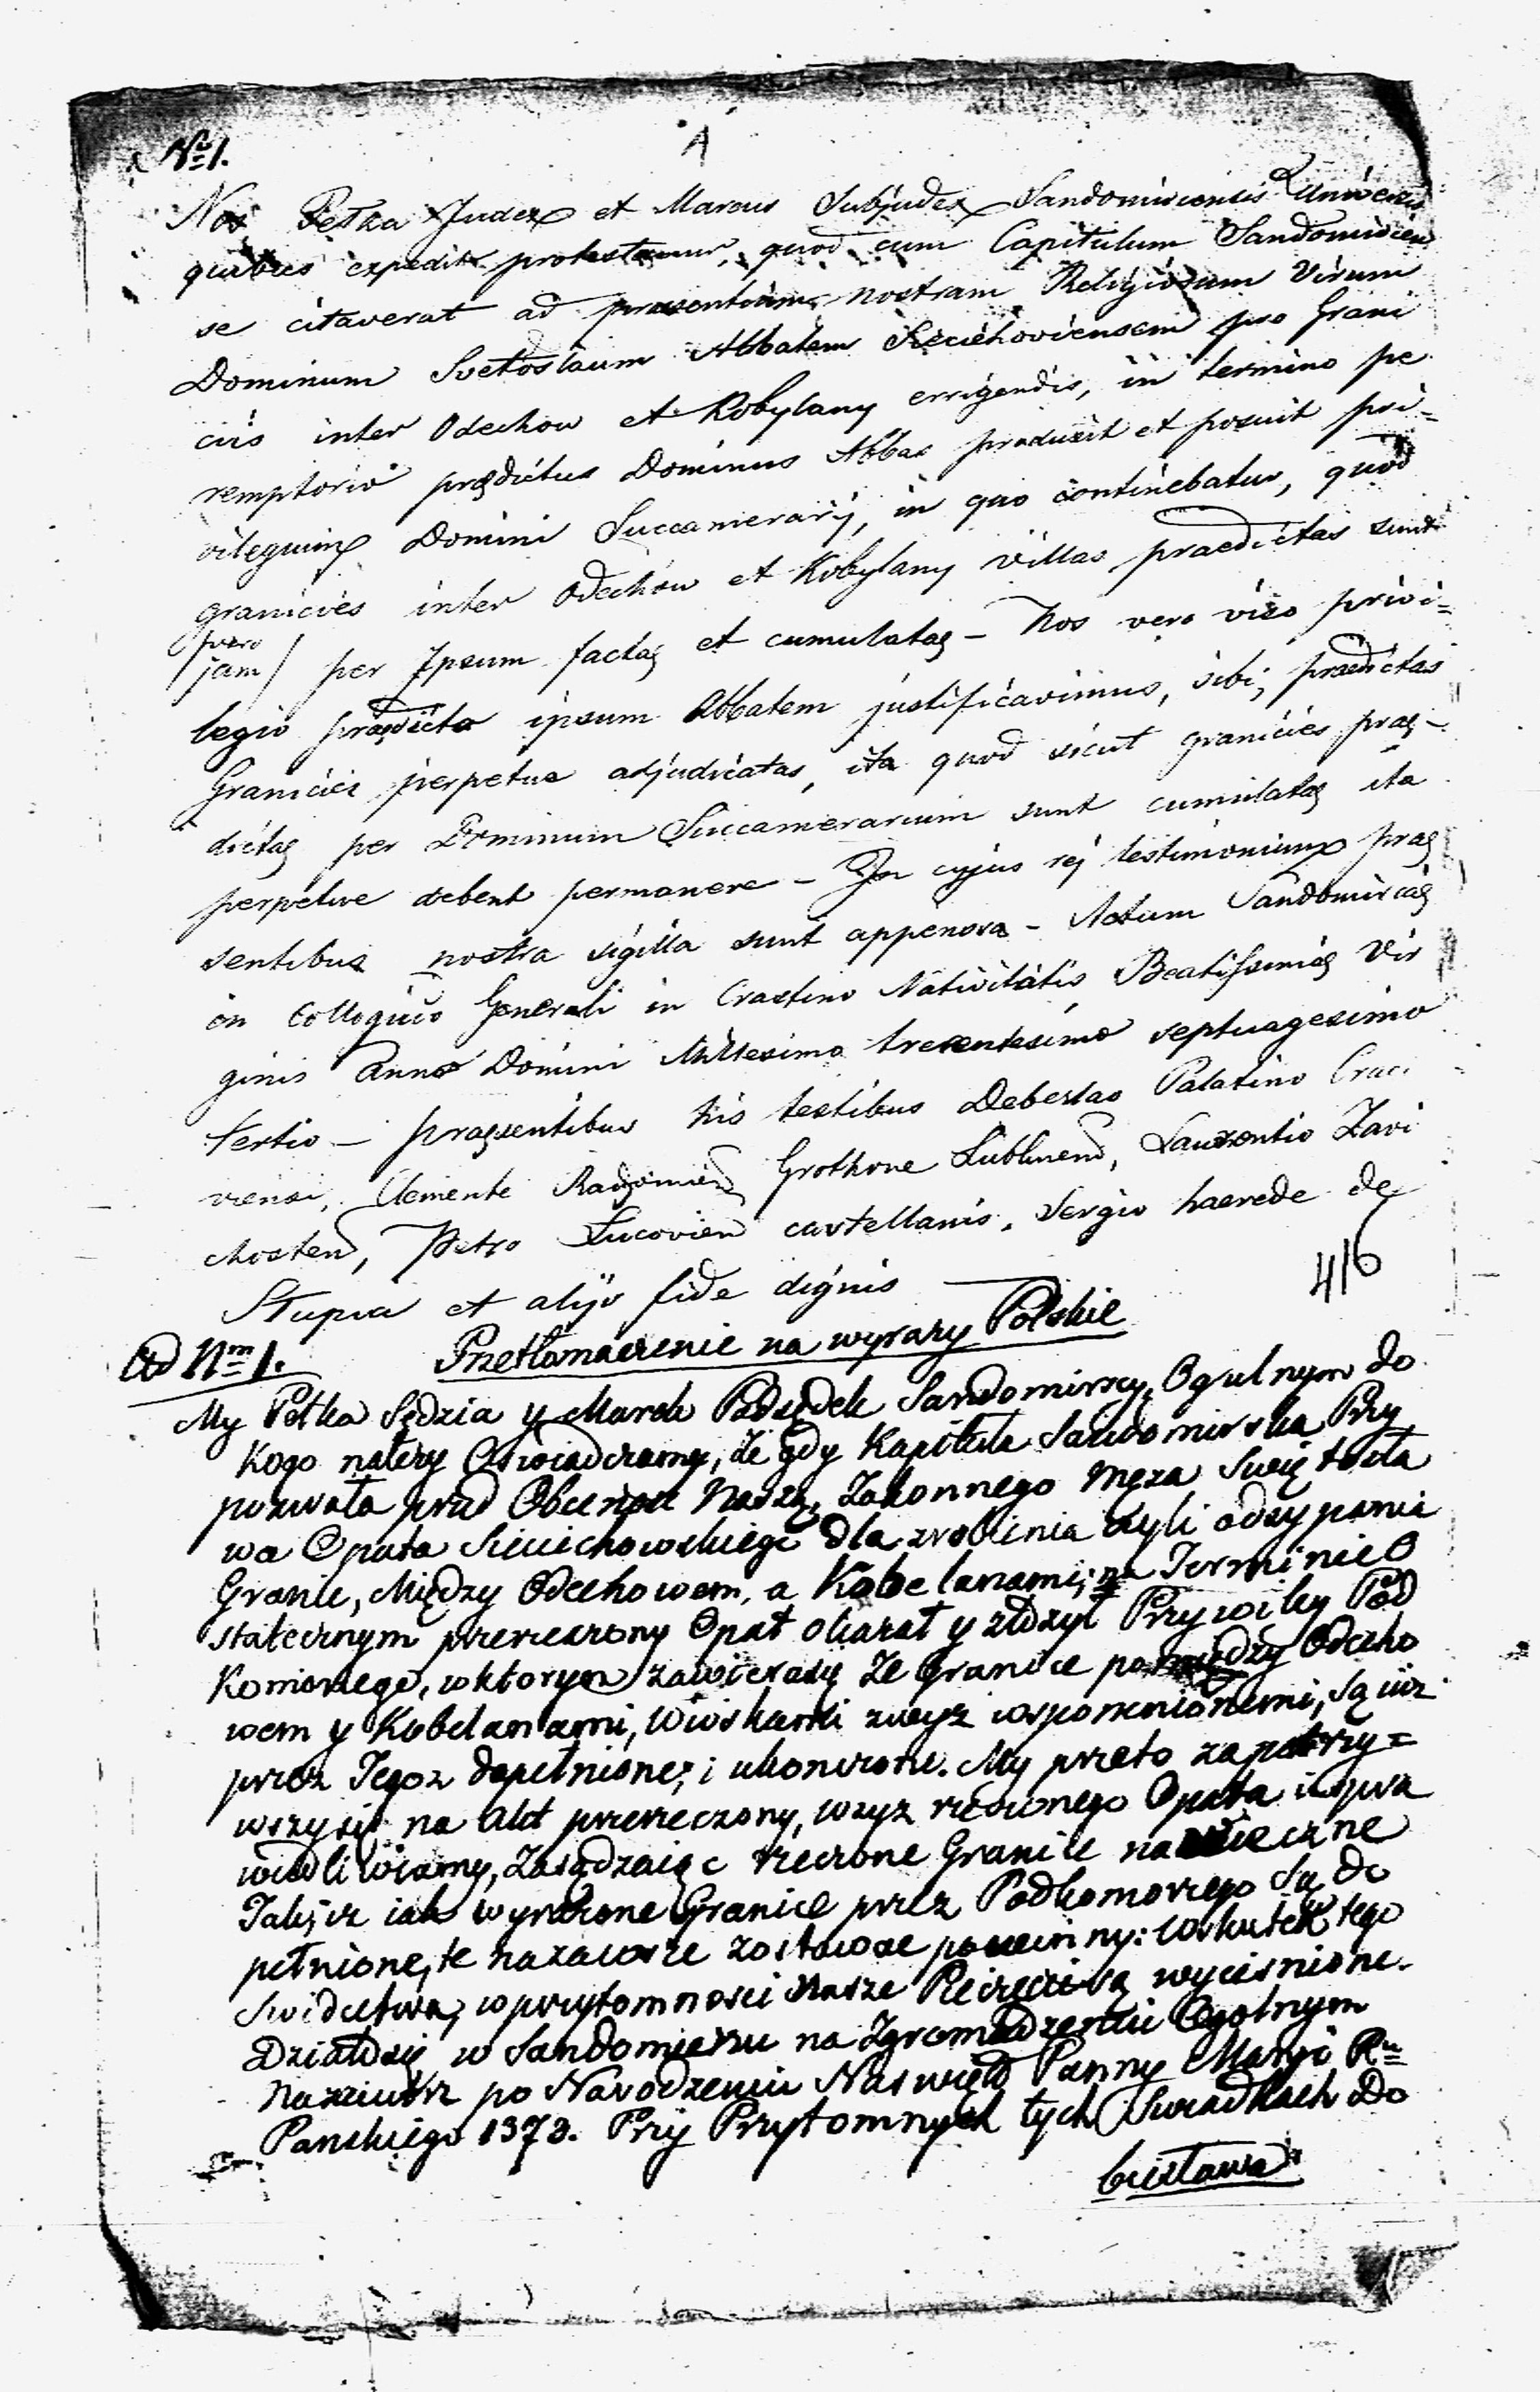 A
№ 1.
Nos Petka Judex et Marcus Subjudex Sandomiriensis Universis
quibus expedit protestamur, quod cum Capitulum Sandomirien
se citaverat ad praesentiam nostram Religiosum Virum
Dominum Svetoslaum Abbatem Sieciehoviensem pro Grani
ciis inter Odechow et Kobylany errigendis, in termino pe
remptorio prędictus Dominus Abbas produxit et posuit pri=
vilegium Domini Succamerarij, in quo continebatur, quod
granicies inter Odechow et Kobylany villas praedictas sunt
(vero
jam) per Ipsum factaę et cumulataę – Nos vero viso privi=
legio praędicto ipsum Abbatem justificavimus, sibi, praedictas
Granicies perpetue adjudicatas, ita quod sicut granicies praę-
dictaę per Dominum Succamerarium sunt cumulataę ita
perpetue debent permanere – In cujus rej testimonium praę
sentibus nostra sigilla sunt appensa – Actum Sandomiriaę
in Colloquio Generali in Crastino Nativitatis Beatissimaę Vir
ginis Anno Domini Millesimo trecentesimo septuagesimo
tertio – praęsentibus his testibus Debeslao Palatino Craco
viensi, Clemente Radomien Grothone Lublinen, Laurentio Zavi
chosten, Petro Lucovien castellanis, Sergio haerede de
Stupia et alijs fide dignis —
416
Ad Nm 1. Przetłomaczenie na wyrazy Polskie
My Petka Sędzia y Marek Podsędek Sandomirscy, Ogulnym do
Kogo należy Oswiadczamy, że gdy Kapituła Sandomirska Przy
pozwała przed Obecność Naszą, Zakonnego Męza Swięto sła
wa Opata Sieciechowskiego dla zrobienia czyli odsypania
Granic, Między Odechowem, a Kobelanami; na Terminie O
statecznym przerzeczony Opat okazał y złozył Przywiley Pod
Komorzego, w ktorym zawiera się że Granice pomiędzy Odecho
wem y Kobelanami, Wioskami zwyz wspomnionemi, są iuz
przez Tegoz dopełnione; i ukonczone. My przeto zapatrzy=
wszy się na Akt przerzeczony, wzyz rzeczonego Opata uspra
wiedliwiamy, Zasądzaiąc rzeczone Granice na wieczne
Tak, iz iak wyrazone Granice przez Podkomorzego Są do
pełnione, te na zawsze zostawac powinny: w skutek tego
Swidectwa, w przytomnosci Nasze Pieczęcie są wycisnione.
Działo się w Sandomierzu na Zgromadzeniu Ogolnym
Nazaiutrz po Narodzeniu Naswięt Panny Maryi Ru
Panskiego 1373. Przy Przytomnych tych Swiadkach Do
biesława